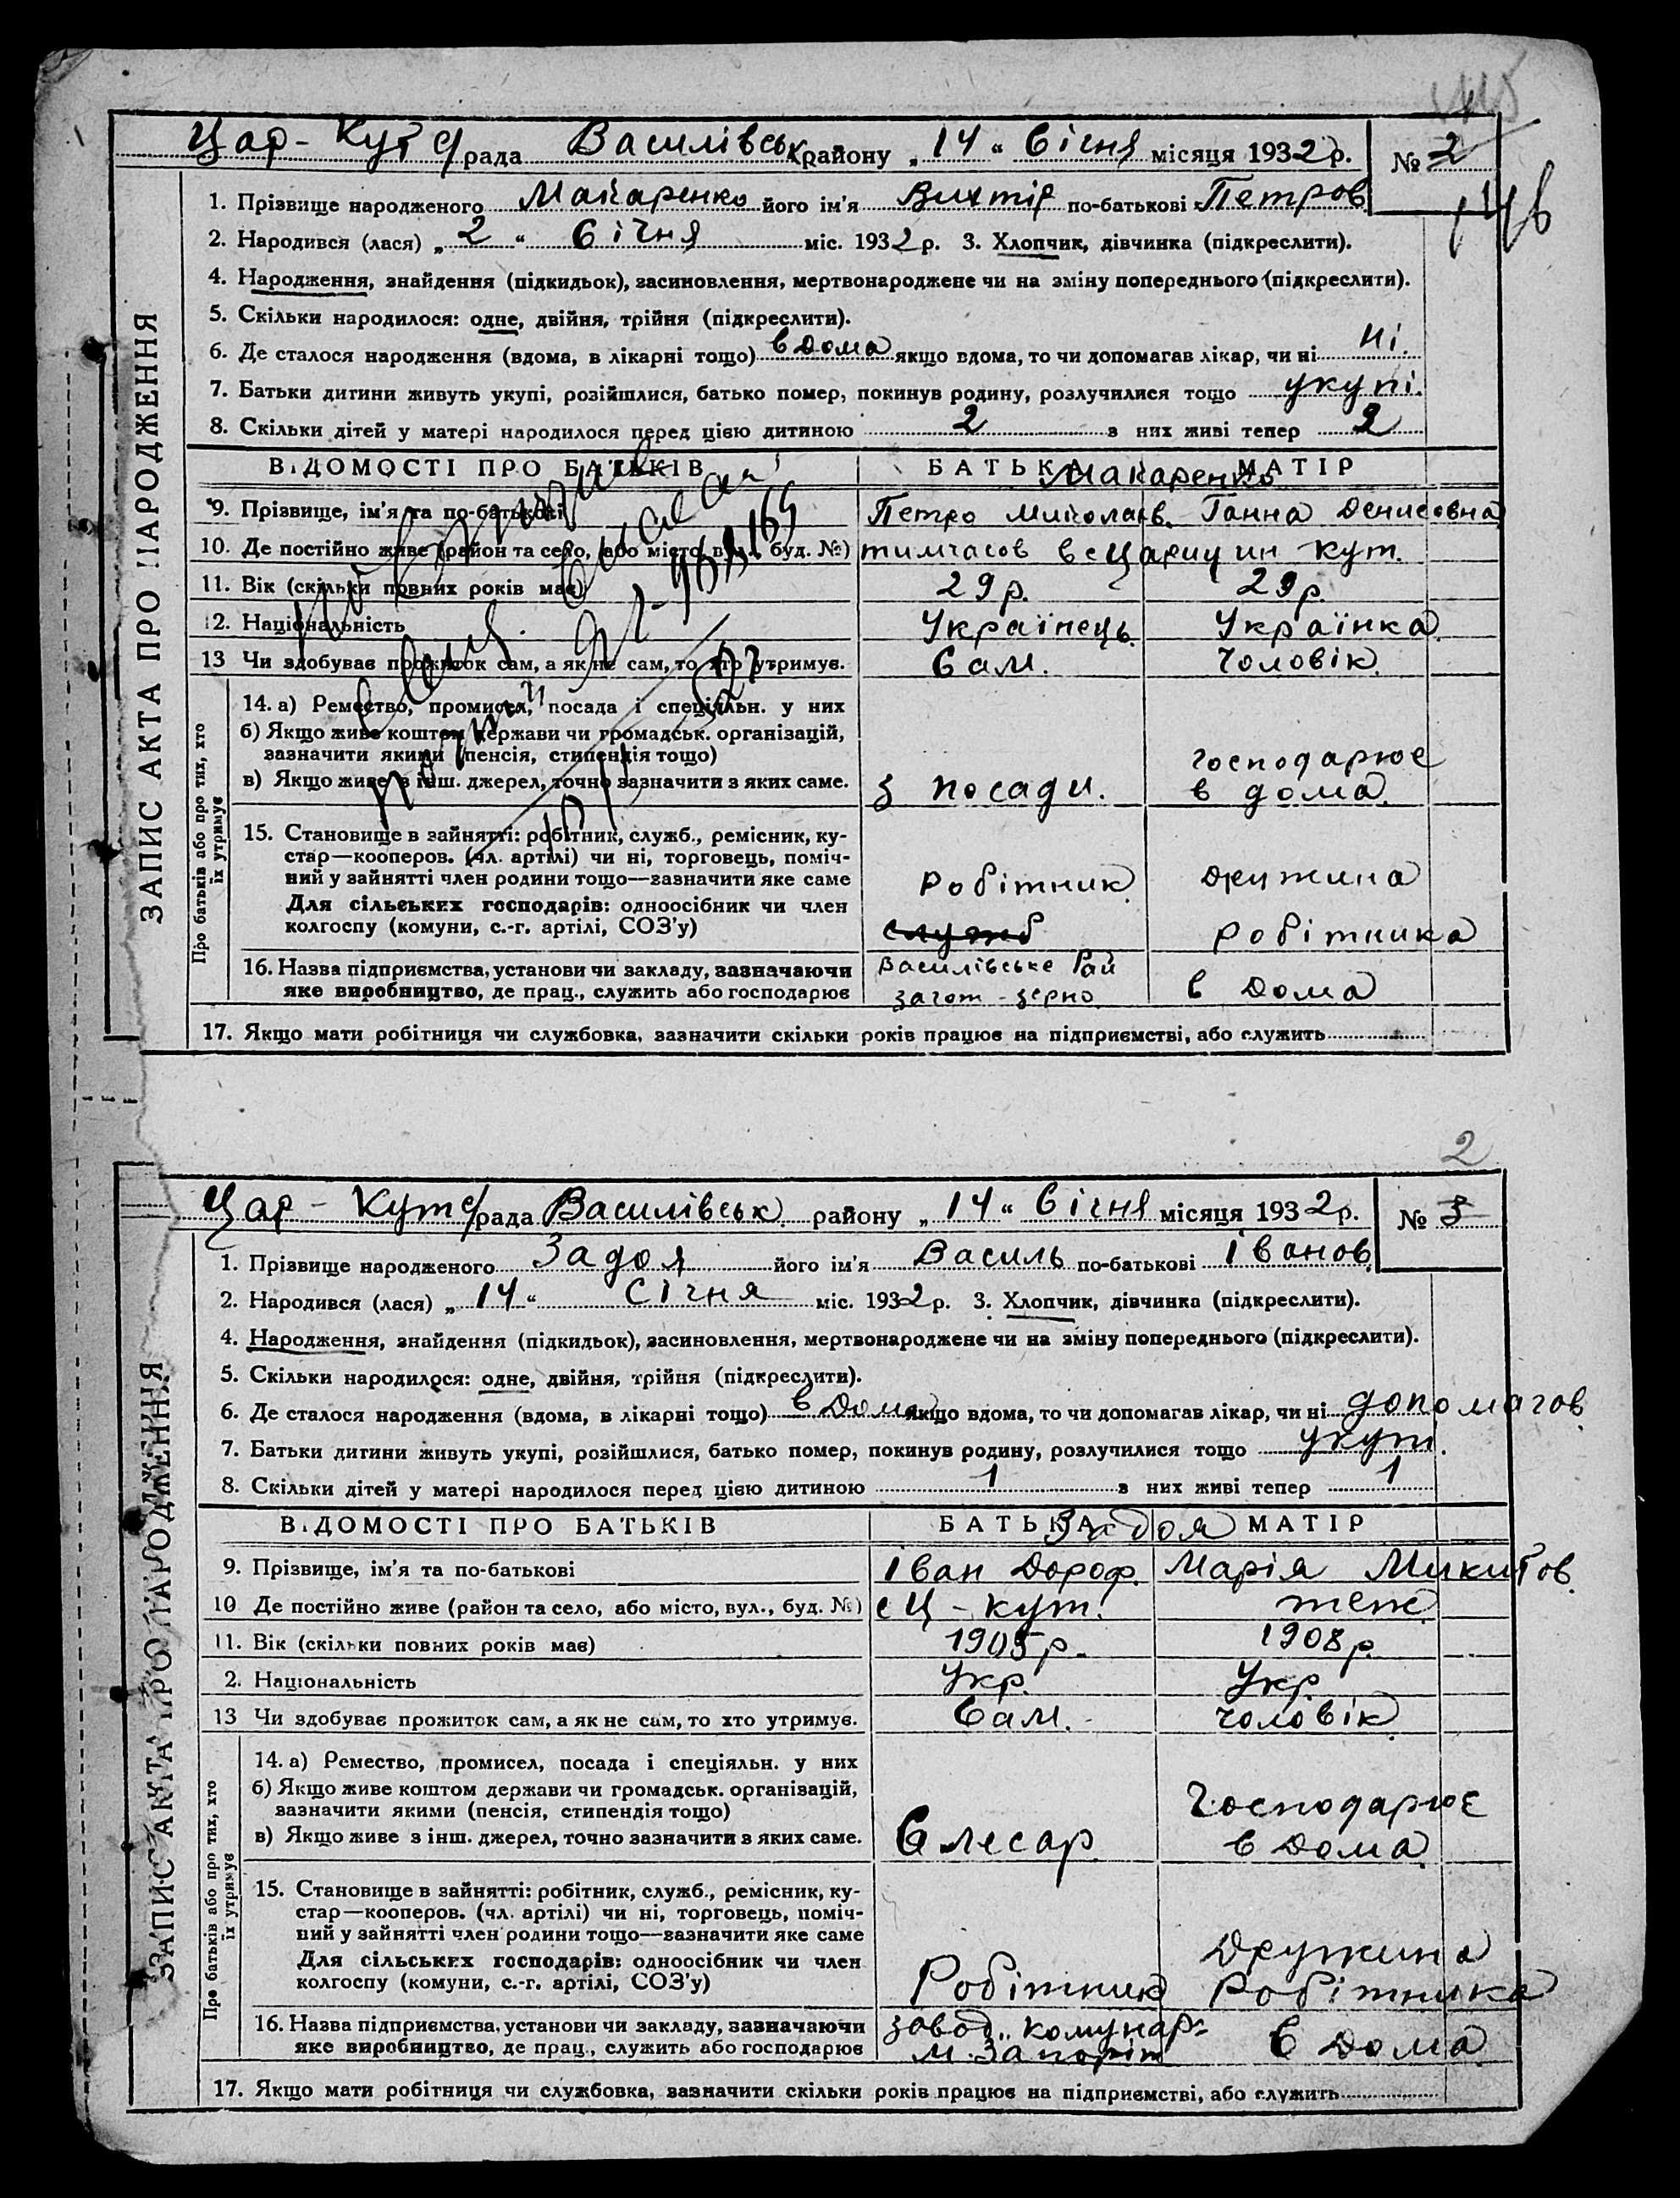 Цар-Кут с/рада Василівськ району „14“ Січня місяця 1932 р. № 2
146
ЗАПИС АКТА ПРО НАРОДЖЕННЯ
1. Прізвище народженого Макаренко його ім'я Вихтір по-батькові Петров
2. Народився (лася) „2“ Січня міс. 1932 р. 3. Хлопчик, дівчинка (підкреслити).
4. Народження, знайдення (підкидьок), засиновлення, мертвонароджене чи на зміну попереднього (підкреслити).
5. Скільки народилося: одне, двійня, трійня (підкреслити).
6. Де сталося народження (вдома, в лікарні тощо) в дома якщо вдома, то чи допомагав лікар, чи ні ні.
7. Батьки дитини живуть укупі, розійшлися, батько помер, покинув родину, розлучилися тощо укупі.
8. Скільки дітей у матері народилося перед цією дитиною 2 з них живі тепер 2
ВІДОМОСТІ ПРО БАТЬКІВ БАТЬКА МАТІР
Макаренко
9. Прізвище, ім'я та по-батькові Петро Миколаєв. Ганна Денисовна
10. Де постійно живе (район та село, або місто, вул., буд. №) тимчасов в с Царицин-Кут.
11. Вік (скільки повних років має) 29 р. 29 р.
12. Національність Українець Українка
13 Чи здобуває прожиток сам, а як не сам, то хто утримує. Сам. Чоловік.
Про батьків або про тих, хто їх утримує
14. а) Ремество, промисел, посада і спеціяльн. у них
б) Якщо живе коштом держави чи громадськ. організацій,
зазначити якими (пенсія, стипендія тощо)
в) Якщо живе з інш. джерел, точно зазначити з яких саме. з посади. господарює в дома.
15. Становище в зайнятті: робітник, служб., ремісник, ку-
стар—кооперов. (чл. артілі) чи ні, торговець, поміч-
ний у зайнятті член родини тощо—зазначити яке саме
Робітник дружина
Для сільських господарів: одноосібник чи член
колгоспу (комуни, с.-г. артілі, СОЗ'у) служб робітника
16. Назва підприємства, установи чи закладу, зазначаючи Василівське Рай
яке виробництво, де прац., служить або господарює загот-зерно в дома
17. Якщо мати робітниця чи службовка, зазначити скільки років працює на підприємстві, або служить
2
Цар-Кут с/рада Василівськ району „14“ Січня місяця 1932 р. № 3
ЗАПИС АКТА ПРО НАРОДЖЕННЯ
1. Прізвище народженого Задоя його ім'я Василь по-батькові Іванов
2. Народився (лася) „14“ Січня міс. 1932 р. 3. Хлопчик, дівчинка (підкреслити).
4. Народження, знайдення (підкидьок), засиновлення, мертвонароджене чи на зміну попереднього (підкреслити).
5. Скільки народилося: одне, двійня, трійня (підкреслити).
6. Де сталося народження (вдома, в лікарні тощо) в дома якщо вдома, то чи допомагав лікар, чи ні допомагов
7. Батьки дитини живуть укупі, розійшлися, батько помер, покинув родину, розлучилися тощо укупі.
8. Скільки дітей у матері народилося перед цією дитиною 1 з них живі тепер 1
ВІДОМОСТІ ПРО БАТЬКІВ БАТЬКА МАТІР
Задоя
9. Прізвище, ім'я та по-батькові Іван Дороф. Марія Микитов.
10 Де постійно живе (район та село, або місто, вул., буд. №) с Ц-кут. теж
11. Вік (скільки повних років має) 1905 р. 1908 р.
2. Національність Укр. Укр.
13 Чи здобуває прожиток сам, а як не сам, то хто утримує. Сам. Чоловік
Про батьків або про тих, хто їх утримує
14. а) Ремество, промисел, посада і спеціяльн. у них
б) Якщо живе коштом держави чи громадськ. організацій,
зазначити якими (пенсія, стипендія тощо)
в) Якщо живе з інш. джерел, точно зазначити з яких саме. Слесар Господарює в дома
15. Становище в зайнятті: робітник, служб., ремісник, ку-
стар—кооперов. (чл. артілі) чи ні, торговець, поміч-
ний у зайнятті член родини тощо—зазначити яке саме
Для сільських господарів: одноосібник чи член
колгоспу (комуни, с.-г. артілі, СОЗ'у) Робітник Дружина Робітника
16. Назва підприємства, установи чи закладу, зазначаючи завод „комунар“
яке виробництво, де прац., служить або господарює м. Запоріж в дома
17. Якщо мати робітниця чи службовка, зазначити скільки років працює на підприємстві, або служить